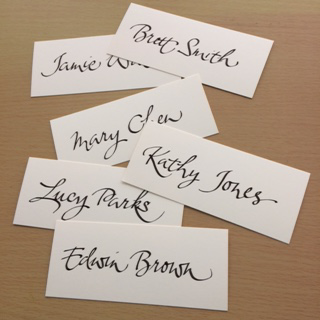 Brett Smith
Jamie
Mary Chen
Kathy Jones
Lucy Parks
Edwin Brown